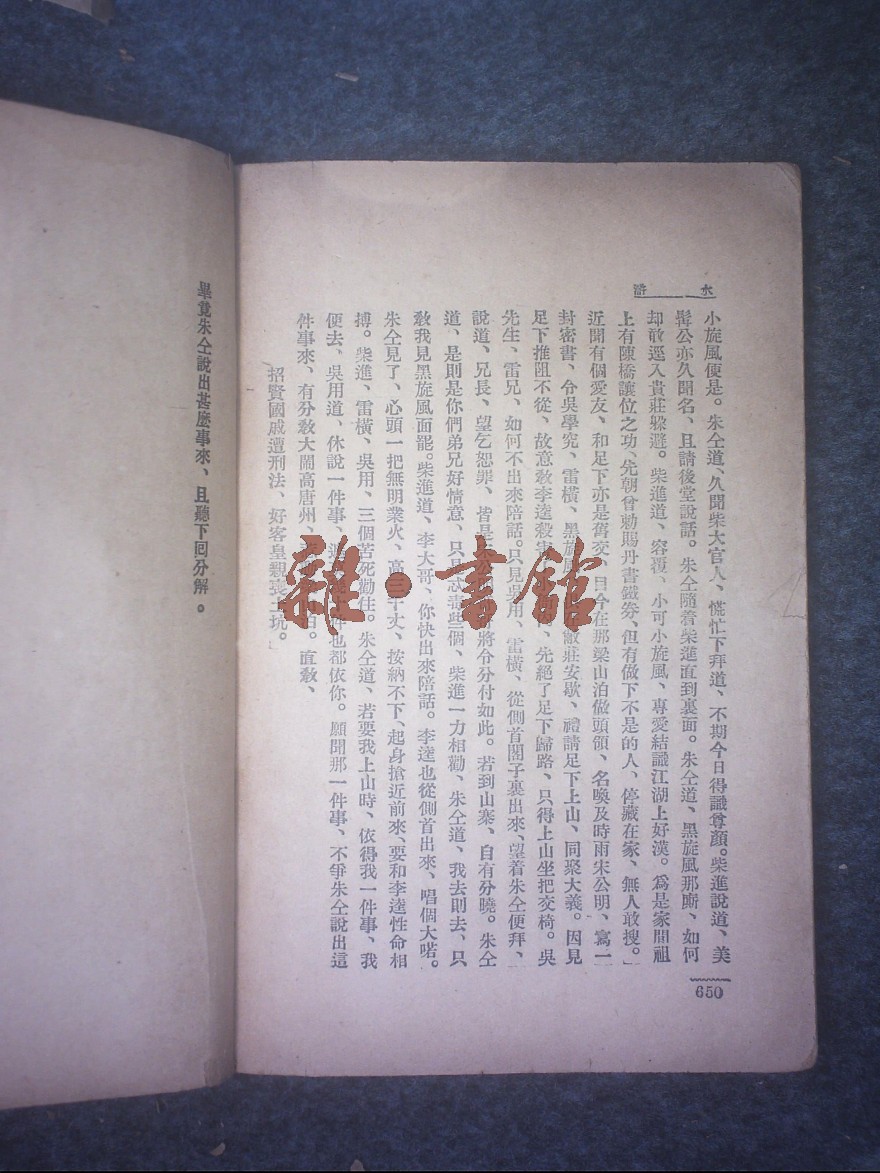 水滸
小旋風便是。朱仝道、久聞柴大官人、慌忙下拜道、不期今日得識尊顏。柴進說道、美
髯公亦久聞名、且請後堂說話。朱仝隨着柴進直到裏面。朱仝道、黑旋風那廝、如何
却敢逕入貴莊躲避。柴進道、容覆、小可小旋風、專愛結識江湖上好漢。爲是家間祖
上有陳橋讓位之功、先朝曾勅賜丹書鐵券、但有做下不是的人、停藏在家、無人敢搜。
近聞有個愛友、和足下亦是舊交、目今在那梁山泊做頭領、名喚及時雨宋公明、寫一
封密書、令吳學究、雷橫、黑旋風 敝莊安歇、禮請足下上山、同聚大義。因見
足下推阻不從、故意敎李逵殺 先絕了足下歸路、只得上山坐把交椅。吳
先生、雷兄、如何不出來陪話。只見吳用、雷橫、從側首閣子裏出來、望着朱仝便拜、
說道、兄長、望乞恕罪、皆是 將令分付如此。若到山寨、自有分曉。朱仝
道、是則是你們弟兄好情意、只是忒毒些個、柴進一力相勸、朱仝道、我去則去、只
敎我見黑旋風面罷。柴進道、李大哥、你快出來陪話。李逵也從側首出來、唱個大喏。
朱仝見了、心頭一把無明業火、高三千丈、按納不下、起身搶近前來、要和李逵性命相
搏。柴進、雷橫、吳用、三個苦死勸住。朱仝道、若要我上山時、依得我一件事、我
便去、吳用道、休說一件事、 件也都依你。願聞那一件事、不爭朱仝說出這
件事來、有分敎大鬧高唐州、 泊。直敎、
招賢國戚遭刑法、好客皇親喪土坑。
650
畢竟朱仝說出甚麽事來、且聽下回分解。
雜·書館